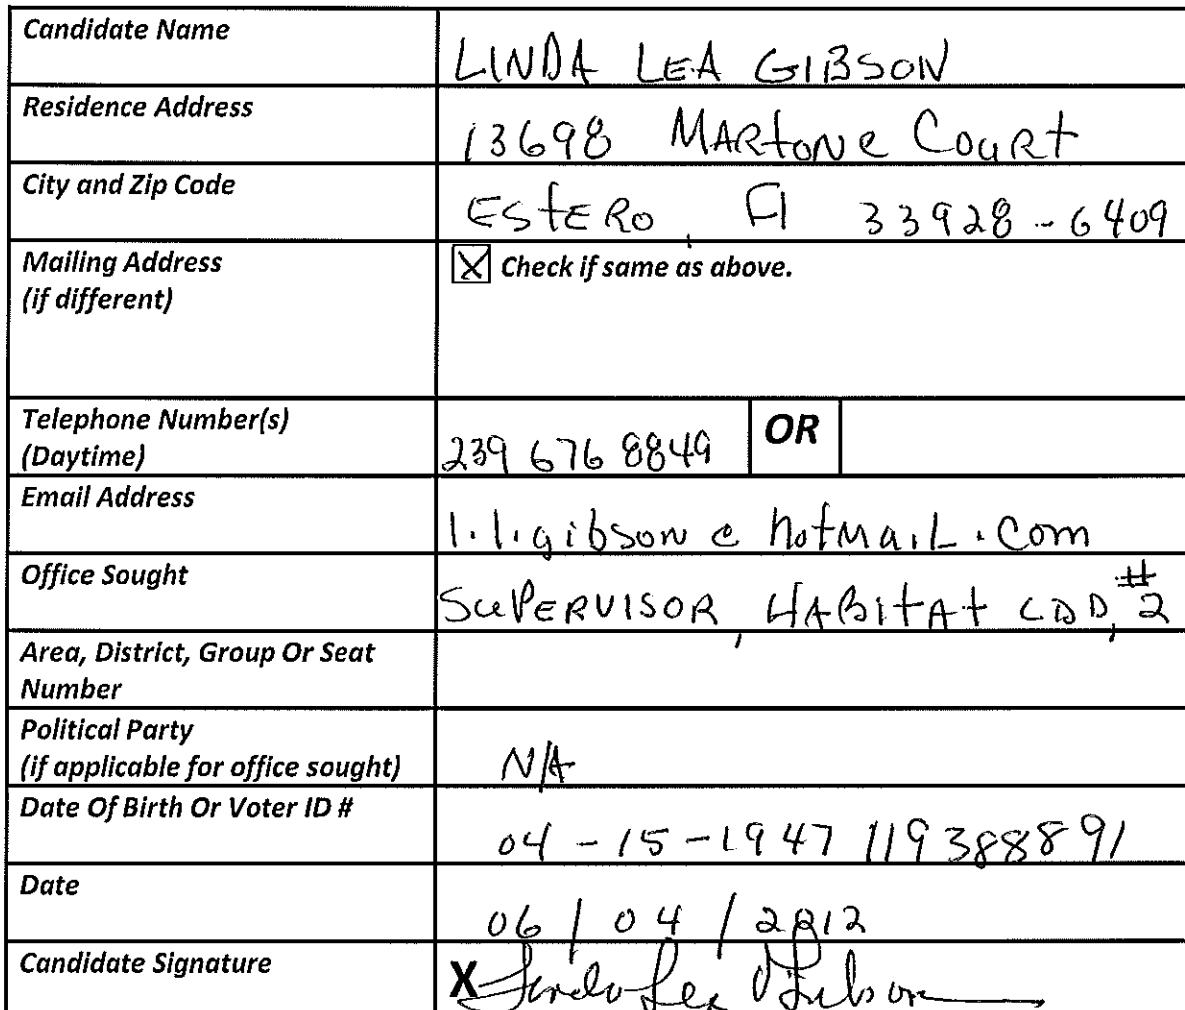 Candidate Name
LINDA LEA GIBSON
Residence Address
13698 MARtONe CouRt
City and Zip Code
EStERo, Fl 33928-6409
Mailing Address
(if different)
☒ Check if same as above.
Telephone Number(s)
(Daytime)
239 676 8849 OR
Email Address
l.l.gibson@hotmaiL.com
Office Sought
SuPERVISOR, HABitAt CDD, #2
Area, District, Group Or Seat
Number
Political Party
(if applicable for office sought)
N/A
Date Of Birth Or Voter ID #
04-15-1947 119388891
Date
06/04/2012
Candidate Signature
X Linda Lea Gibson